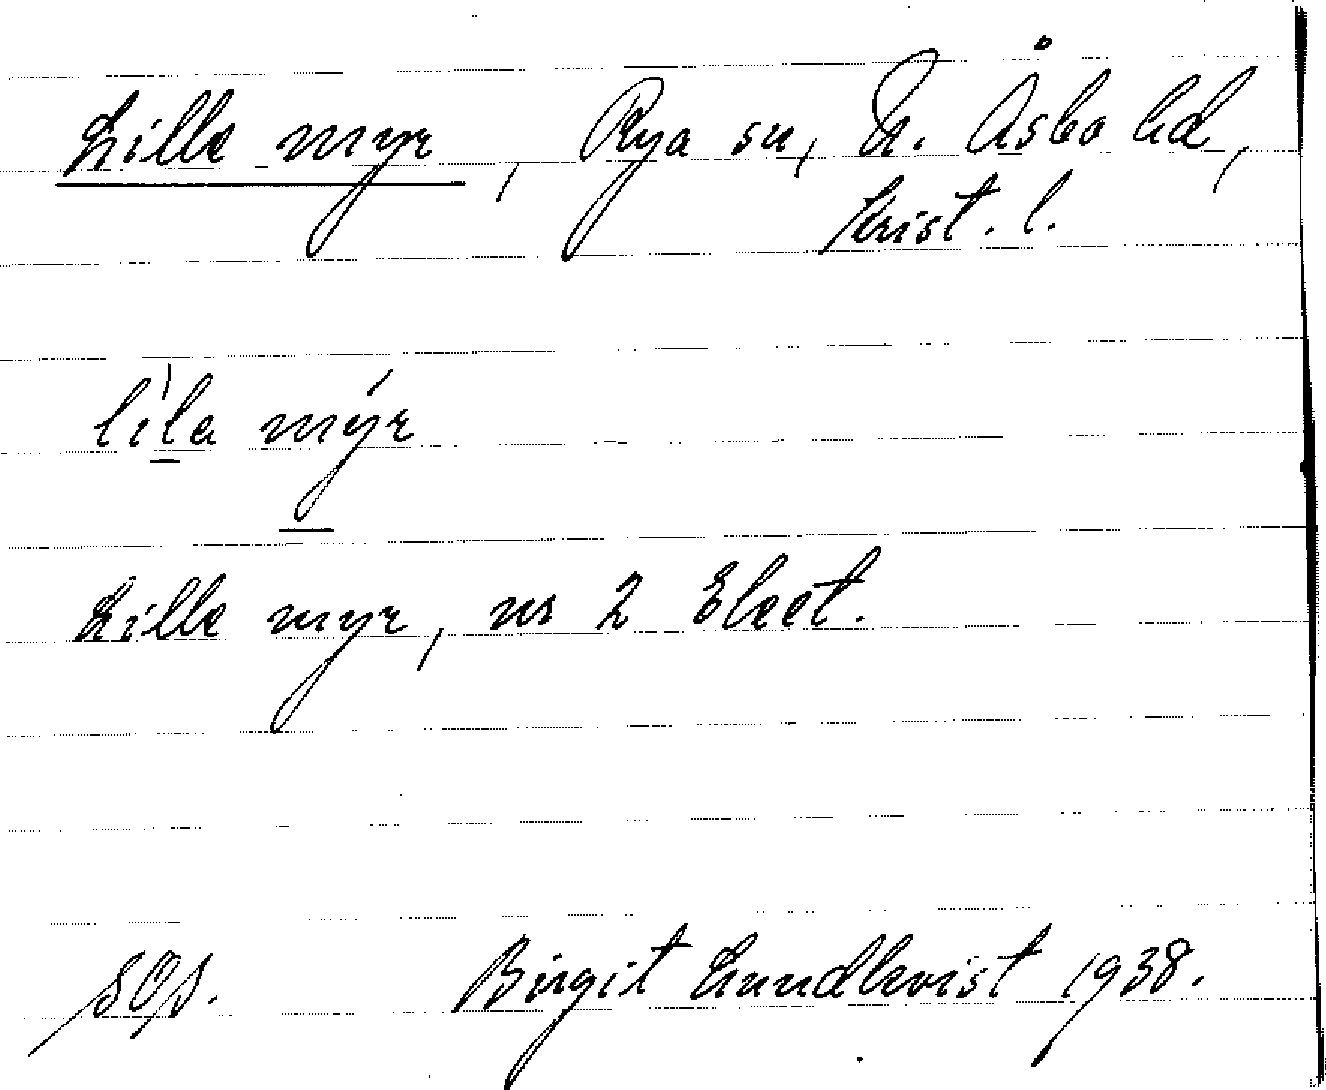 Lille myr, Rya sn, N. Åsbo hd,
Krist. l.
lìla mýr
Lille myr, nr 2 Elest.
SOA.
Birgit Lundkvist 1938.